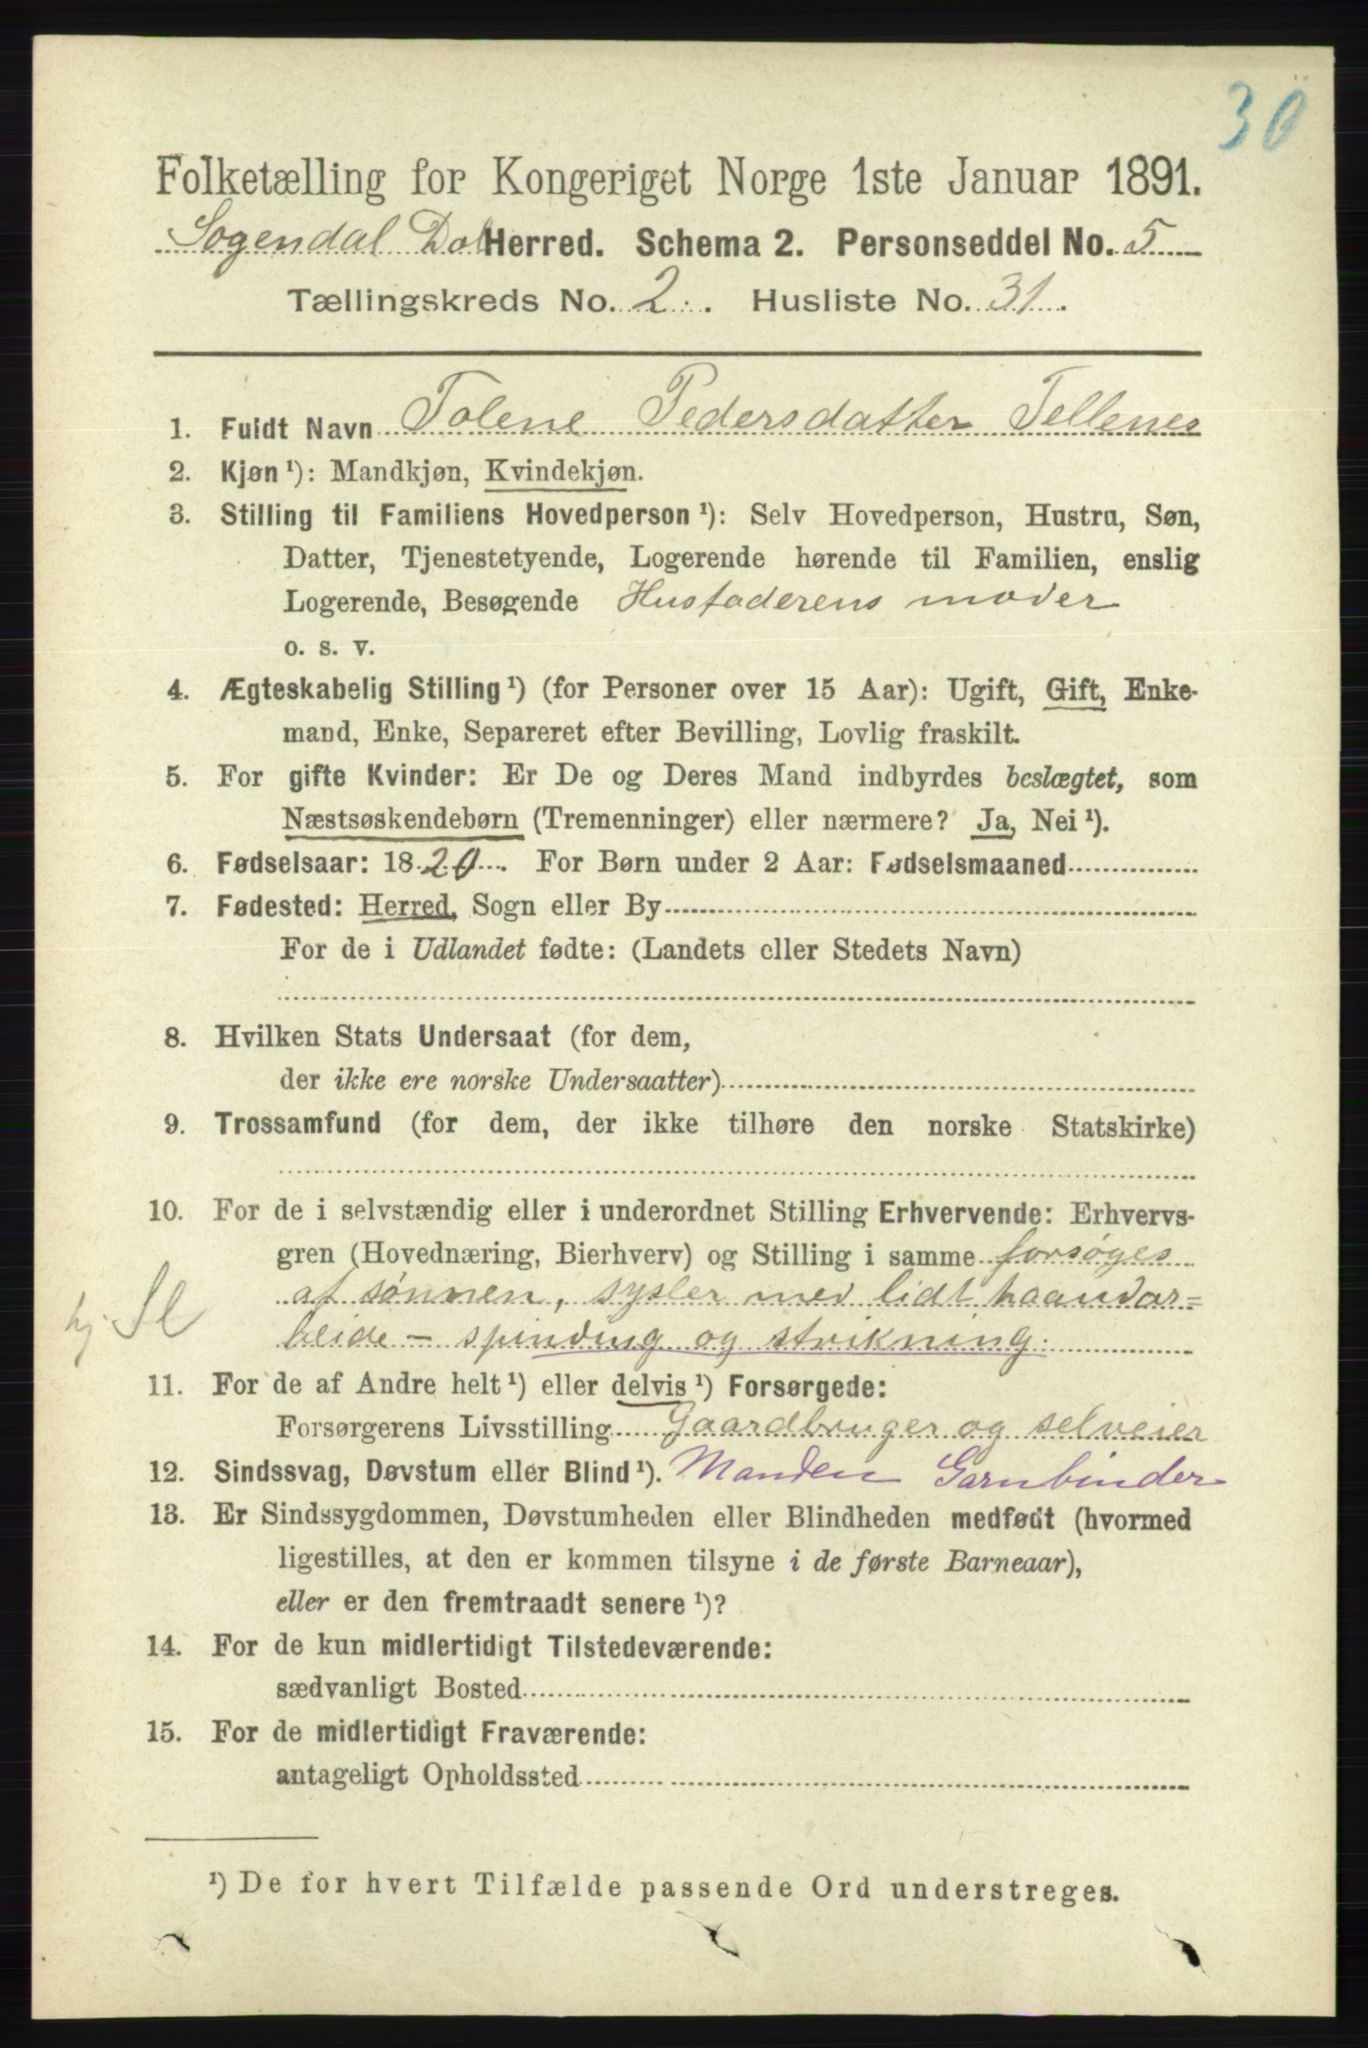 30
Folketælling for Kongeriget Norge 1ste Januar 1891.
Sogendal Dal Herred. Schema 2. Personseddel No. 5
Tællingskreds No. 2. Husliste No. 31.
1. Fuldt Navn Tolene Pedersdatter Tellenes
2. Kjøn ¹): Mandkjøn, Kvindekjøn.
3. Stilling til Familiens Hovedperson ¹): Selv Hovedperson, Hustru, Søn,
Datter, Tjenestetyende, Logerende hørende til Familien, enslig
Logerende, Besøgende Husfaderens moder
o. s. v.
4. Ægteskabelig Stilling ¹) (for Personer over 15 Aar): Ugift, Gift, Enke-
mand, Enke, Separeret efter Bevilling, Lovlig fraskilt.
5. For gifte Kvinder: Er De og Deres Mand indbyrdes beslægtet, som
Næstsøskendebørn (Tremenninger) eller nærmere? Ja, Nei ¹).
6. Fødselsaar: 1820. For Børn under 2 Aar: Fødselsmaaned
7. Fødested: Herred, Sogn eller By
For de i Udlandet fødte: (Landets eller Stedets Navn)
8. Hvilken Stats Undersaat (for dem,
der ikke ere norske Undersaatter)
9. Trossamfund (for dem, der ikke tilhøre den norske Statskirke)
10. For de i selvstændig eller i underordnet Stilling Erhvervende: Erhvervs-
gren (Hovednæring, Bierhverv) og Stilling i samme forsøges
af sønnen, sysler med lidt haandar=
hj. Sl beide – spinding og strikning.
11. For de af Andre helt ¹) eller delvis ¹) Forsørgede:
Forsørgerens Livsstilling Gaardbruger og selveier
12. Sindssvag, Døvstum eller Blind ¹). Manden Garnbinder
13. Er Sindssygdommen, Døvstumheden eller Blindheden medfødt (hvormed
ligestilles, at den er kommen tilsyne i de første Barneaar),
eller er den fremtraadt senere ¹)?
14. For de kun midlertidigt Tilstedeværende:
sædvanligt Bosted
15. For de midlertidigt Fraværende:
antageligt Opholdssted
¹) De for hvert Tilfælde passende Ord understreges.